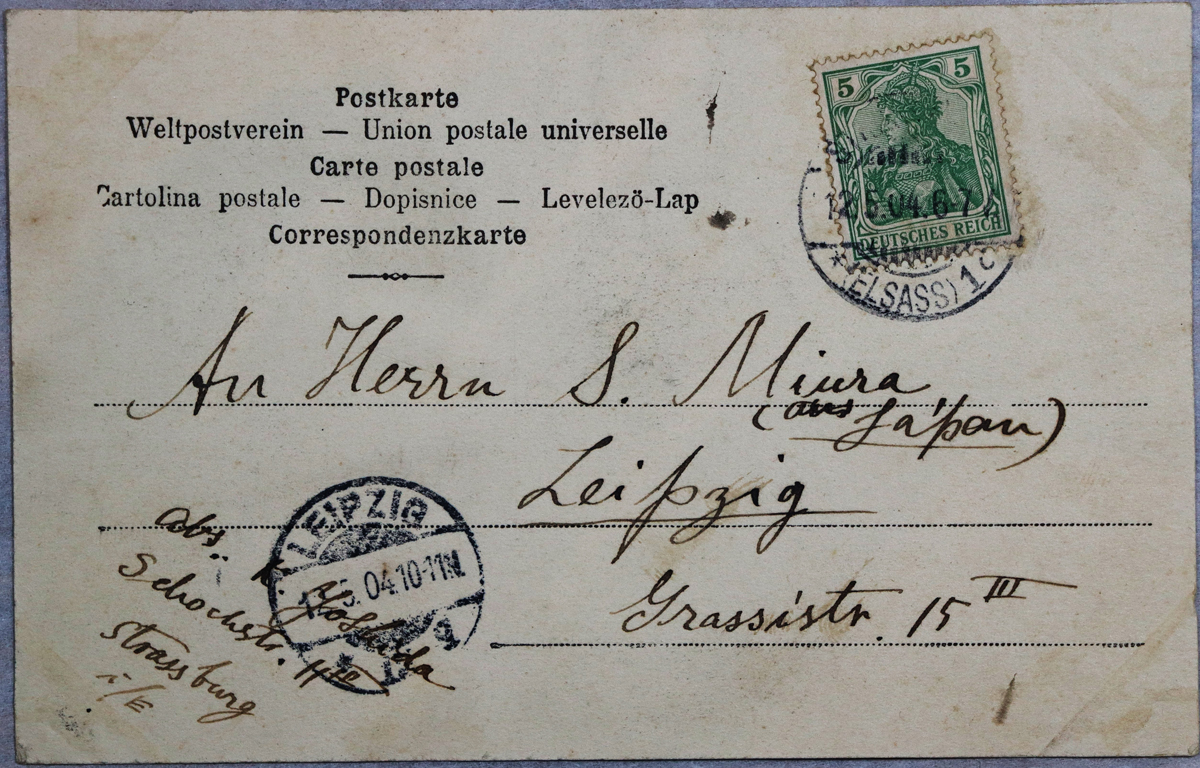 Postkarte
Weltpostverein — Union postale universelle
Carte postale
Cartolina postale — Dopisnice — Levelezö-Lap
Correspondenzkarte
5 5
12.5.04.6-7
DEUTSCHES REICH
* (ELSASS) 1 c
An Herrn S. Miura
(aus Japan)
Leipzig
Grassistr. 15 III
LEIPZIG
5.04.10-11
abs. K. Yoshida
Schochstr. 11 III
Strassburg
i/E